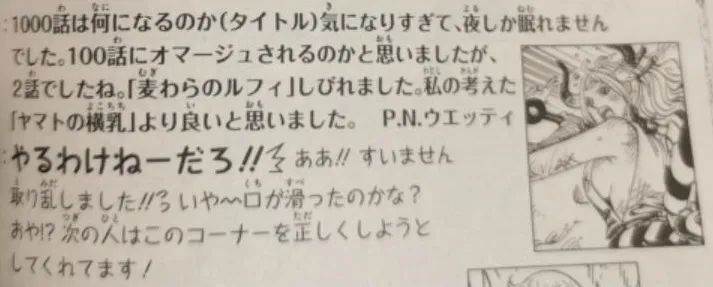 :1000話は何になるのか(タイトル)気になりすぎて、夜しか眠れません
でした。100話にオマージュされるのかと思いましたが、
2話でしたね。「麦わらのルフィ」しびれました。私の考えた
「ヤマトの横乳」より良いと思いました。 P.N.ウエッティ
:やるわけねーだろ!! ああ!! すいません
取り乱しました!! いや〜口が滑ったのかな?
おや!? 次の人はこのコーナーを正しくしようと
してくれてます!